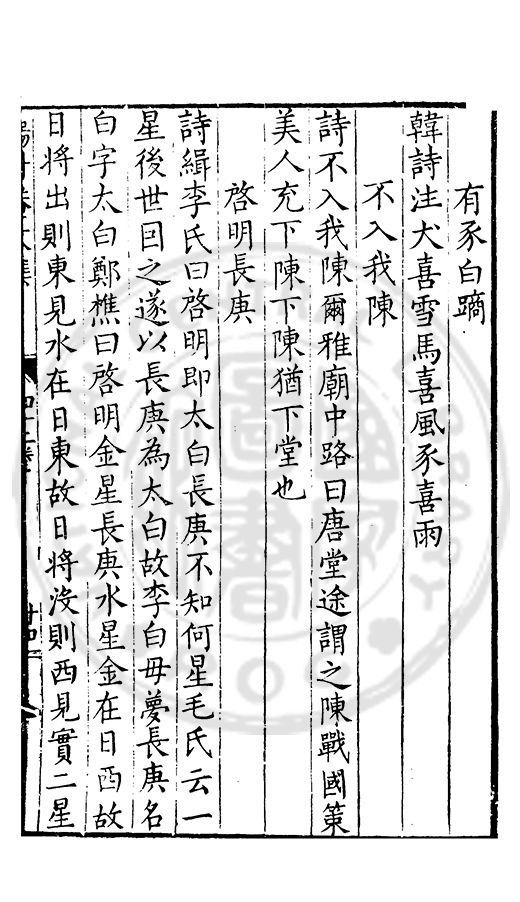 有豕白蹢
韓詩注犬喜雪馬喜風豕喜雨
不入我陳
詩不入我陳爾雅廟中路曰唐堂途謂之陳戰國策
美人充下陳下陳猶下堂也
啓明長庚
詩緝李氏曰啓明即太白長庚不知何星毛氏云一
星後世因之遂以長庚為太白故李白母夢長庚名
白字太白鄭樵曰啓明金星長庚水星金在日西故
日將出則東見水在日東故日將沒則西見實二星